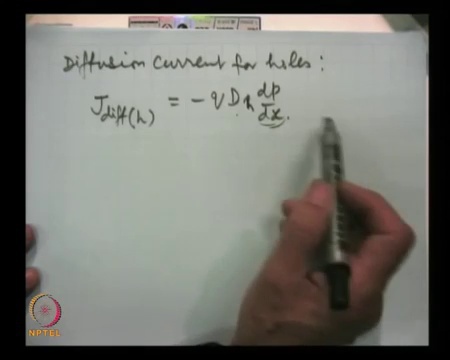 Diffusion current for holes :
J_diff(h) = - q D_h dp/dx .
NPTEL